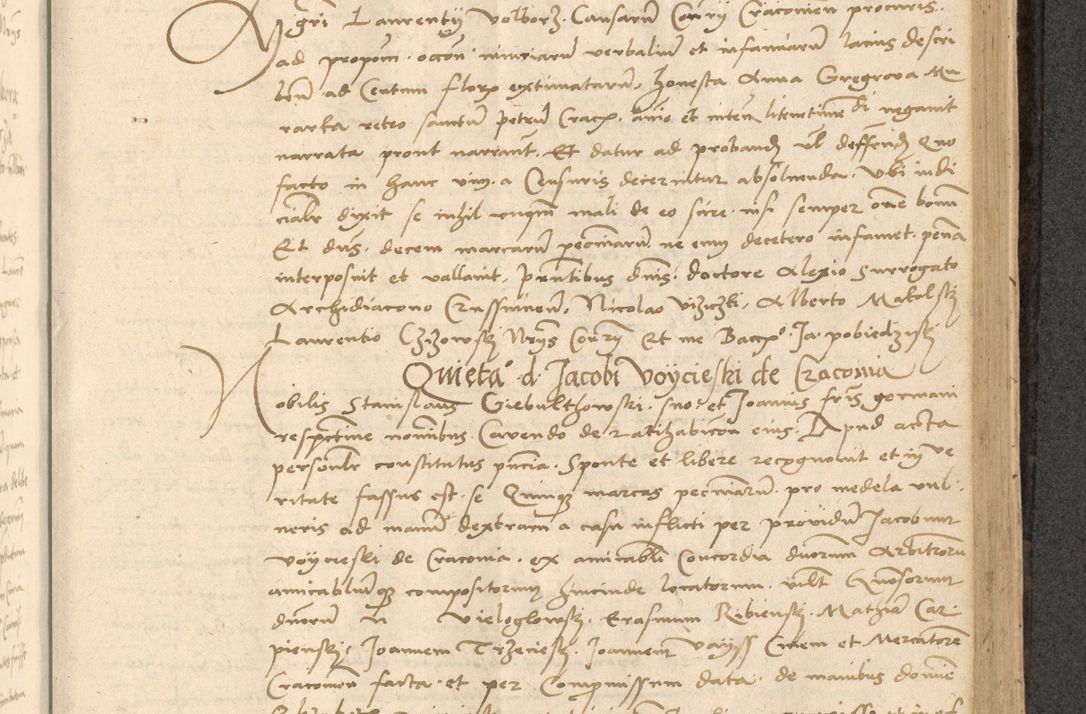 Mgri Laurentÿ Volborz. Causarũ Conry Cracoviẽn procuris.
ad propom. occõn iniuriarũ verbaliũ et infamiarũ lacius descri
ad Centum flory extimatarũ, Honesta Anna Gregrova Mu
rarka retro sanctum Petrũ Crac. aio et intẽn litem negavit
narrata prout narrant. Et datur ad proband vl deffend Quo
facto in hanc vim. a Censuris decernitur absoluenda. Vbi iudi
dixit se nihil vnqm mali de eo scire. nisi semper oẽ bonũ
Et dus. decem marcarũ pecuniarũ. ne eum decetero infamet. pena
interposuit et vallavit. Pntibus dnis. doctore Alexio surrogato
Archidiacono Crassiuien. Nicolao Alberto Makolskÿ
Laurentio Czizowskÿ Nrys Conry Et me Bacc. Ja. pobiedzyskÿ
Quieta. d. Jacobi Voycieski de Cracovia
Nobilis Stanislaus Giebulthowski. suo et Joannis fris germani
nomibus. Cavendo de ratihabicon eius. Apud acta
personlr constitutus pncia. Sponte et libere recognovit et in ve
ritate fassus est. se Quinq marcas pecuniarũ. pro medela vul.
neris ad manũ dextram a casu inflicti per providũ Jacobum
voycieski de Cracovia. ex amicabli Concordia duorum Arbitrorũ
amicabliũq compositorum hincinde locatorum. vidlt Quosorum
Vieloglowskÿ. Erasmum Ribienskÿ. Mathiam Car.
pienskÿ. Joannem Trzecieskÿ. Joannem Vayss Civem et Mercatorẽ
Cracovien facta. et per Compmissum data. de manibus